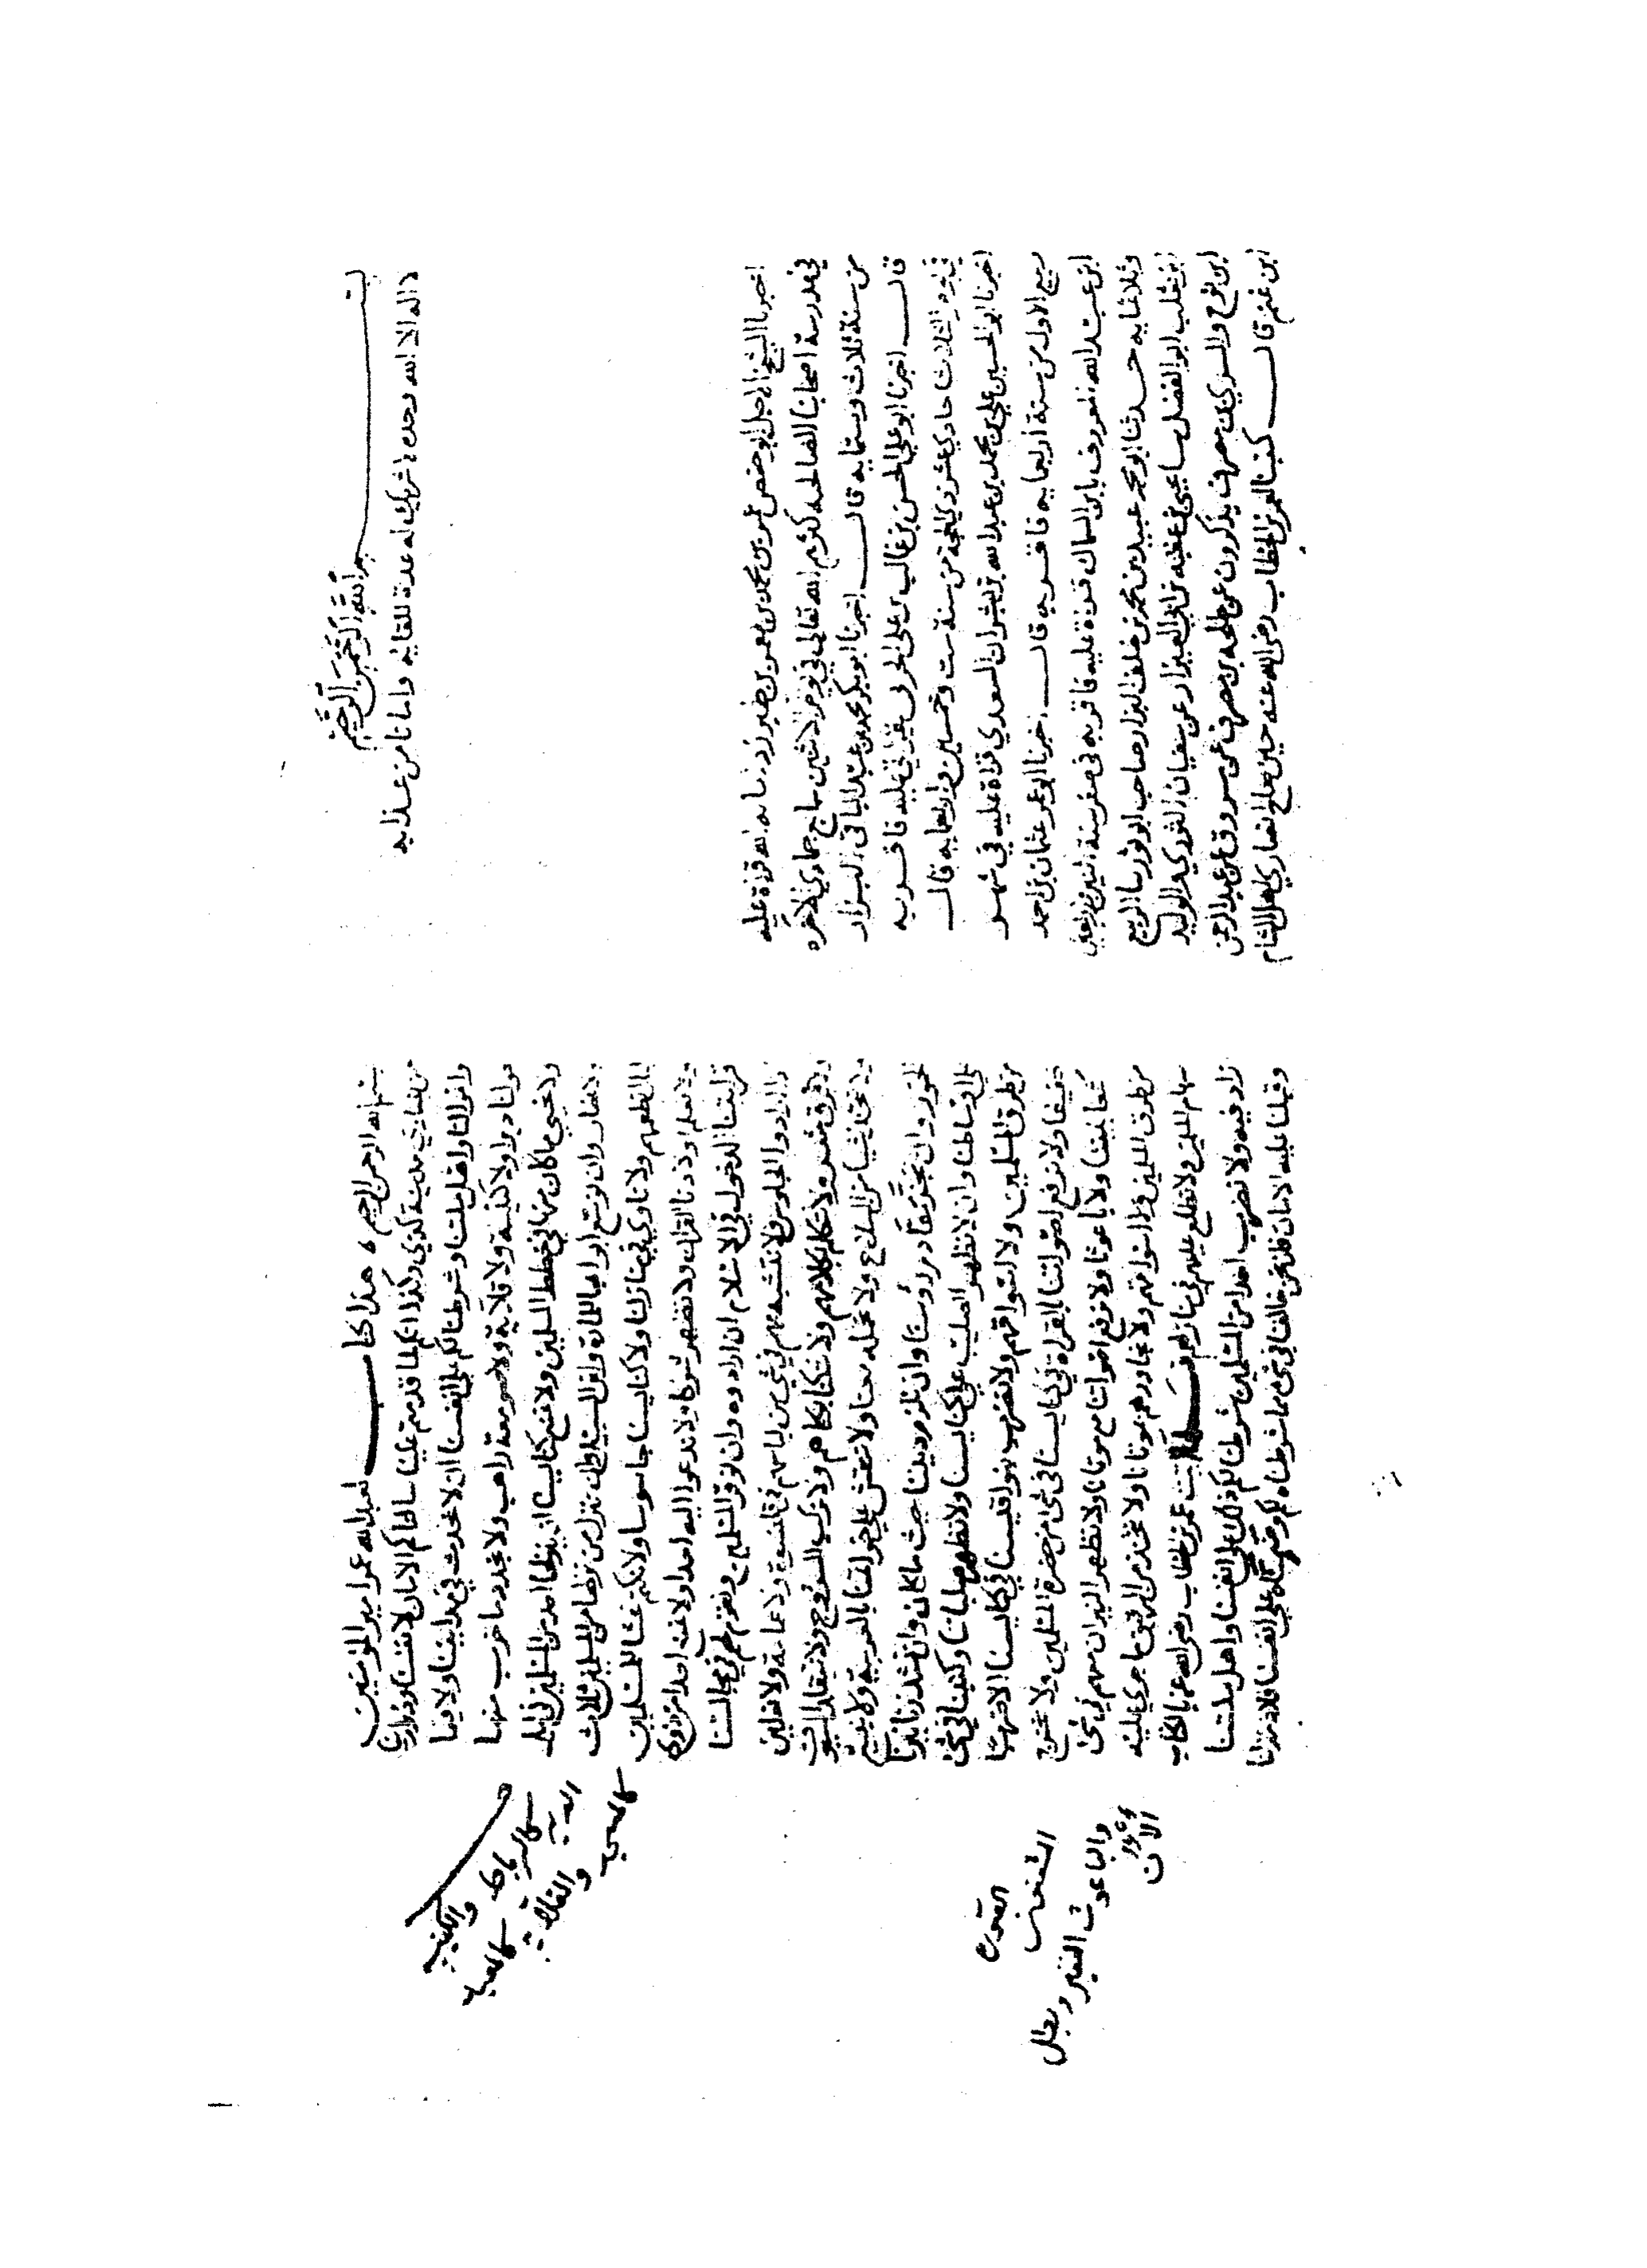 بسم الله الرحمن الرحيم
لا اله الا الله وحده لا شريك له عدة للقايه وامانا من عذابه
اخبرنا الشيخ الاجل ابو حفص عمر بن محمد بن معمر بن طبرزد اثابه الله قراة عليه
في مدرسة اصحابنا الصالحه كثرهم الله تعالى في يوم الاثنين سابع جمادي الاخره
من سنة ثلاث وستمايه قال اخبرنا ابو بكر محمد بن عبد الباقي البزاز
قال اخبرنا ابو علي الحسن بن غالب بن علي الحربي بقراتي عليه فاقر به
في يوم الثلاثا حادي عشر ذي الحجة من سنة ست وخمسين واربعمايه قال
اخبرنا ابو الحسين علي بن محمد بن عبد الله بن بشران السعدي قراة عليه في شهر
ربيع الاول من سنة اربعمايه فاقر به قال اخبرنا ابو عمرو عثمان بن احمد
ابن عبد الله المعروف بابن السماك قراة عليه فاقر به في صفر سنة اثنين واربعين
وثلاثمايه حدثنا ابو محمد عبيد بن محمد بن خلف البزار صاحب ابو ثور سا الربيع
ابن ثعلب ابو الفضل سا يحيى بن عقبه بن ابي العيزار عن سفيان الثوري والوليد
ابن نوح والسري بن مصرف يذكرون عن طلحه بن مصرف عن مسروق عن عبد الرحمن
ابن غنم قال كتبنا لعمر بن الخطاب رضي الله عنه حين صالح نصاري اهل الشام
بسم الله الرحمن الرحيم هذا كتاب لعبد الله عمر امير المؤمنين
من نصاري مدينة كذي وكذا انكم لما قدمتم علينا سالناكم الامان لانفسنا وذرارينا
واموالنا واهل ملتنا وشرطنا لكم على انفسنا ان لا نحدث في مداينتا ولا فيما
حولنا ديرا ولا كنيسة ولا قلاية ولا صومعة راهب ولا نجدد ما خرب منها
ولا نحيي ما كان منها في خطط المسلمين ولا نمنع كنايسنا ان ينزلها احد من المسلمين في ليل
ولا نهار وان نوسع ابوابها للمارة وابن السبيل وان ننزل من مر بنا من المسلمين ثلاث
ليال نطعمهم ولا ناوي في منازلنا ولا كنايسنا جاسوسا ولا نكتم غشا للمسلمين
ولا نعلم اولادنا القران ولا نظهر شركا ولا ندعوا اليه احدا ولا نمنع احدا من ذوي
قرابتنا الدخول في الاسلام ان ارادوه وان نوقر المسلمين ونقوم لهم في مجالسنا
اذا ارادوا الجلوس ولا نتشبه بهم في شي من لباسهم في قلنسوة ولا عمامة ولا نعلين
ولا فرق شعر ولا نتكلم بكلامهم ولا نتكنا بكناهم ولا نركب السروج ولا نتقلد السيوف
ولا نتخذ شيا من السلاح ولا نحمله معنا ولا ننقش على خواتمنا بالعربية ولا نبيع
الخمور وان نجز مقادم رؤسنا وان نلزم ديننا حيث ما كان وان نشد زنانيرنا
على اوساطنا وان لا نظهر الصليب على كنايسنا ولا نظهر صلباننا وكتبنا في شي
من طرق المسلمين ولا اسواقهم ولا نضرب بنواقيسنا في كنايسنا الا ضربا
خفيفا ولا نرفع اصواتنا بالقراة في كنايسنا في شي من حضرة المسلمين ولا نخرج
شعانينا ولا باعوثا ولا نرفع اصواتنا مع موتانا ولا نظهر النيران معهم في شي
من طرق المسلمين ولا اسواقهم ولا نجاورهم بموتانا ولا نتخذ من الرقيق ما جرى عليه
سهام المسلمين ولا نطلع عليهم في منازلهم فلما اتيت عمر بن الخطاب رضي الله عنه بالكتاب
زاد فيه ولا نضرب احدا من المسلمين شرطنا لكم ذلك على انفسنا واهل ملتنا
وقبلنا عليه الامان فان نحن خالفنا في شي مما شرطناه لكم وضمناه على انفسنا فلا ذمة لنا
والباعوث النفير ويطال